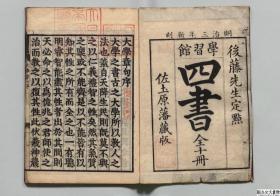 明治三年新刻
後藤先生定點
四書全十冊
學習館
佐土原藩藏版
大學章句序
大學之書古之大學所以教人之
法也蓋自天降生民則既莫不與
之以仁義禮智之性矣然其氣質
之稟或不能齊是以不能皆有以
知其性之所有而全之也一有聰
明睿智能盡其性者出於其間則
天必命之以爲億兆之君師使之
治而教之以復其性此伏羲神農